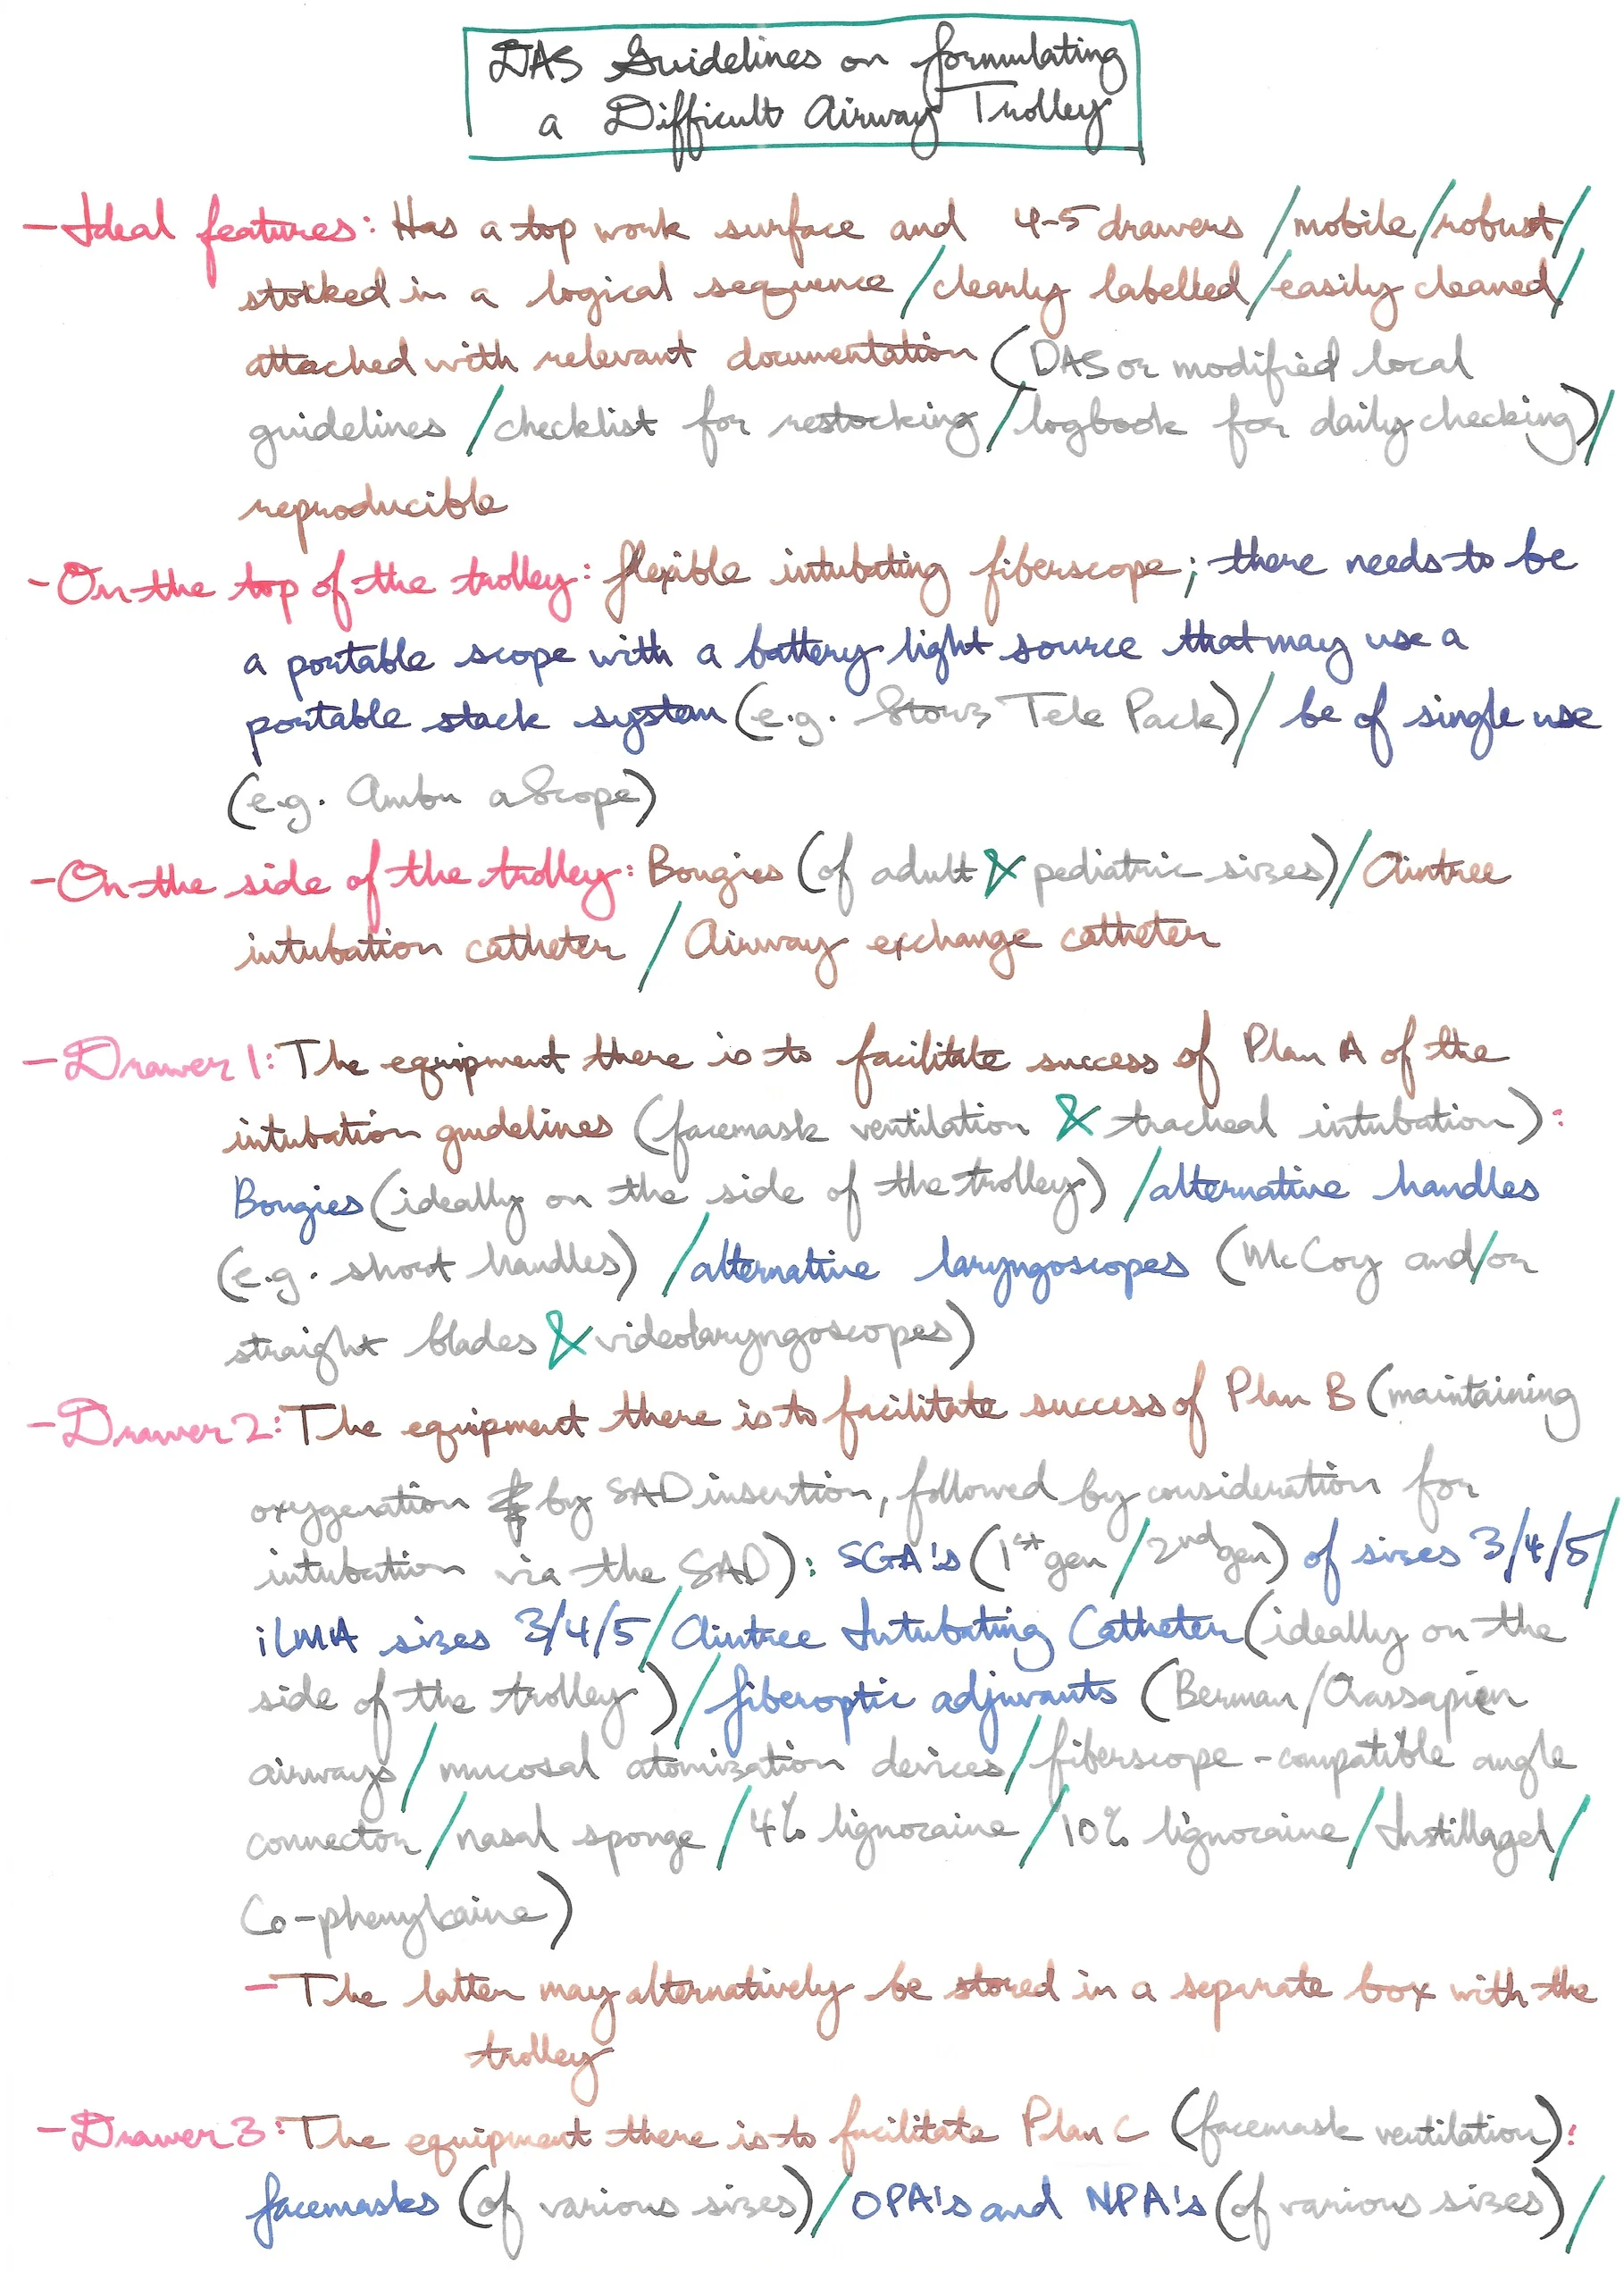 DAS Guidelines on formulating
a Difficult Airway Trolley
- Ideal features: Has a top work surface and 4-5 drawers / mobile / robust /
stocked in a logical sequence / clearly labelled / easily cleaned /
attached with relevant documentation (DAS or modified local
guidelines / checklist for restocking / logbook for daily checking) /
reproducible
- On the top of the trolley: flexible intubating fiberscope; there needs to be
a portable scope with a battery light source that may use a
portable stack system (e.g. Storz Tele Pack) / be of single use
(e.g. Ambu aScope)
- On the side of the trolley: Bougies (of adult & pediatric sizes) / Aintree
intubation catheter / Airway exchange catheter
- Drawer 1: The equipment there is to facilitate success of Plan A of the
intubation guidelines (facemask ventilation & tracheal intubation):
Bougies (ideally on the side of the trolley) / alternative handles
(e.g. short handles) / alternative laryngoscopes (McCoy and/or
straight blades & videolaryngoscopes)
- Drawer 2: The equipment there is to facilitate success of Plan B (maintaining
oxygenation by SAD insertion, followed by consideration for
intubation via the SAD): SGA's (1st gen / 2nd gen) of sizes 3/4/5 /
iLMA sizes 3/4/5 / Aintree Intubating Catheter (ideally on the
side of the trolley) / fiberoptic adjuvants (Berman/Ovassapian
airways / mucosal atomization devices / fiberscope-compatible angle
connector / nasal sponge / 4% lignocaine / 10% lignocaine / Instillagel /
Co-phenylcaine)
- The latter may alternatively be stored in a separate box with the
trolley
- Drawer 3: The equipment there is to facilitate Plan C (facemask ventilation):
facemasks (of various sizes) / OPA's and NPA's (of various sizes) /